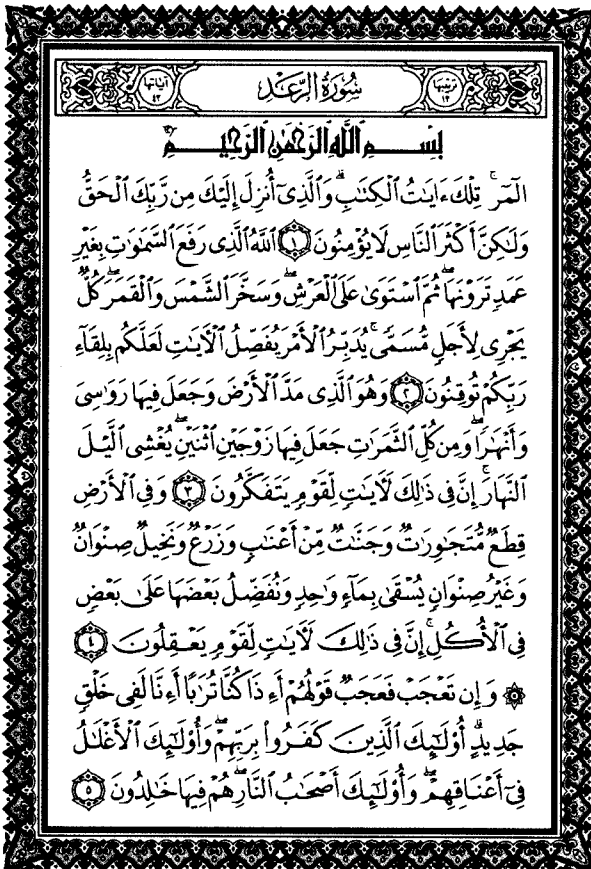 ترتيبها ١٣ سُورَةُ الرَّعْدِ آياتها ٤٣
بِسْمِ اللَّهِ الرَّحْمَٰنِ الرَّحِيمِ
الٓمٓرۚ تِلْكَ ءَايَٰتُ ٱلْكِتَٰبِۗ وَٱلَّذِىٓ أُنزِلَ إِلَيْكَ مِن رَّبِّكَ ٱلْحَقُّ
وَلَٰكِنَّ أَكْثَرَ ٱلنَّاسِ لَا يُؤْمِنُونَ ١ ٱللَّهُ ٱلَّذِى رَفَعَ ٱلسَّمَٰوَٰتِ بِغَيْرِ
عَمَدٍ تَرَوْنَهَاۖ ثُمَّ ٱسْتَوَىٰ عَلَى ٱلْعَرْشِۖ وَسَخَّرَ ٱلشَّمْسَ وَٱلْقَمَرَۖ كُلٌّ
يَجْرِى لِأَجَلٍ مُّسَمًّىۚ يُدَبِّرُ ٱلْأَمْرَ يُفَصِّلُ ٱلْءَايَٰتِ لَعَلَّكُم بِلِقَآءِ
رَبِّكُمْ تُوقِنُونَ ٢ وَهُوَ ٱلَّذِى مَدَّ ٱلْأَرْضَ وَجَعَلَ فِيهَا رَوَٰسِىَ
وَأَنْهَٰرًاۖ وَمِن كُلِّ ٱلثَّمَرَٰتِ جَعَلَ فِيهَا زَوْجَيْنِ ٱثْنَيْنِۖ يُغْشِى ٱلَّيْلَ
ٱلنَّهَارَۚ إِنَّ فِى ذَٰلِكَ لَءَايَٰتٍ لِّقَوْمٍ يَتَفَكَّرُونَ ٣ وَفِى ٱلْأَرْضِ
قِطَعٌ مُّتَجَٰوِرَٰتٌ وَجَنَّٰتٌ مِّنْ أَعْنَٰبٍ وَزَرْعٌ وَنَخِيلٌ صِنْوَانٌ
وَغَيْرُ صِنْوَانٍ يُسْقَىٰ بِمَآءٍ وَٰحِدٍ وَنُفَضِّلُ بَعْضَهَا عَلَىٰ بَعْضٍ
فِى ٱلْأُكُلِۚ إِنَّ فِى ذَٰلِكَ لَءَايَٰتٍ لِّقَوْمٍ يَعْقِلُونَ ٤
۞ وَإِن تَعْجَبْ فَعَجَبٌ قَوْلُهُمْ أَءِذَا كُنَّا تُرَٰبًا أَءِنَّا لَفِى خَلْقٍ
جَدِيدٍۗ أُو۟لَٰٓئِكَ ٱلَّذِينَ كَفَرُوا۟ بِرَبِّهِمْۖ وَأُو۟لَٰٓئِكَ ٱلْأَغْلَٰلُ
فِىٓ أَعْنَاقِهِمْۖ وَأُو۟لَٰٓئِكَ أَصْحَٰبُ ٱلنَّارِۖ هُمْ فِيهَا خَٰلِدُونَ ٥